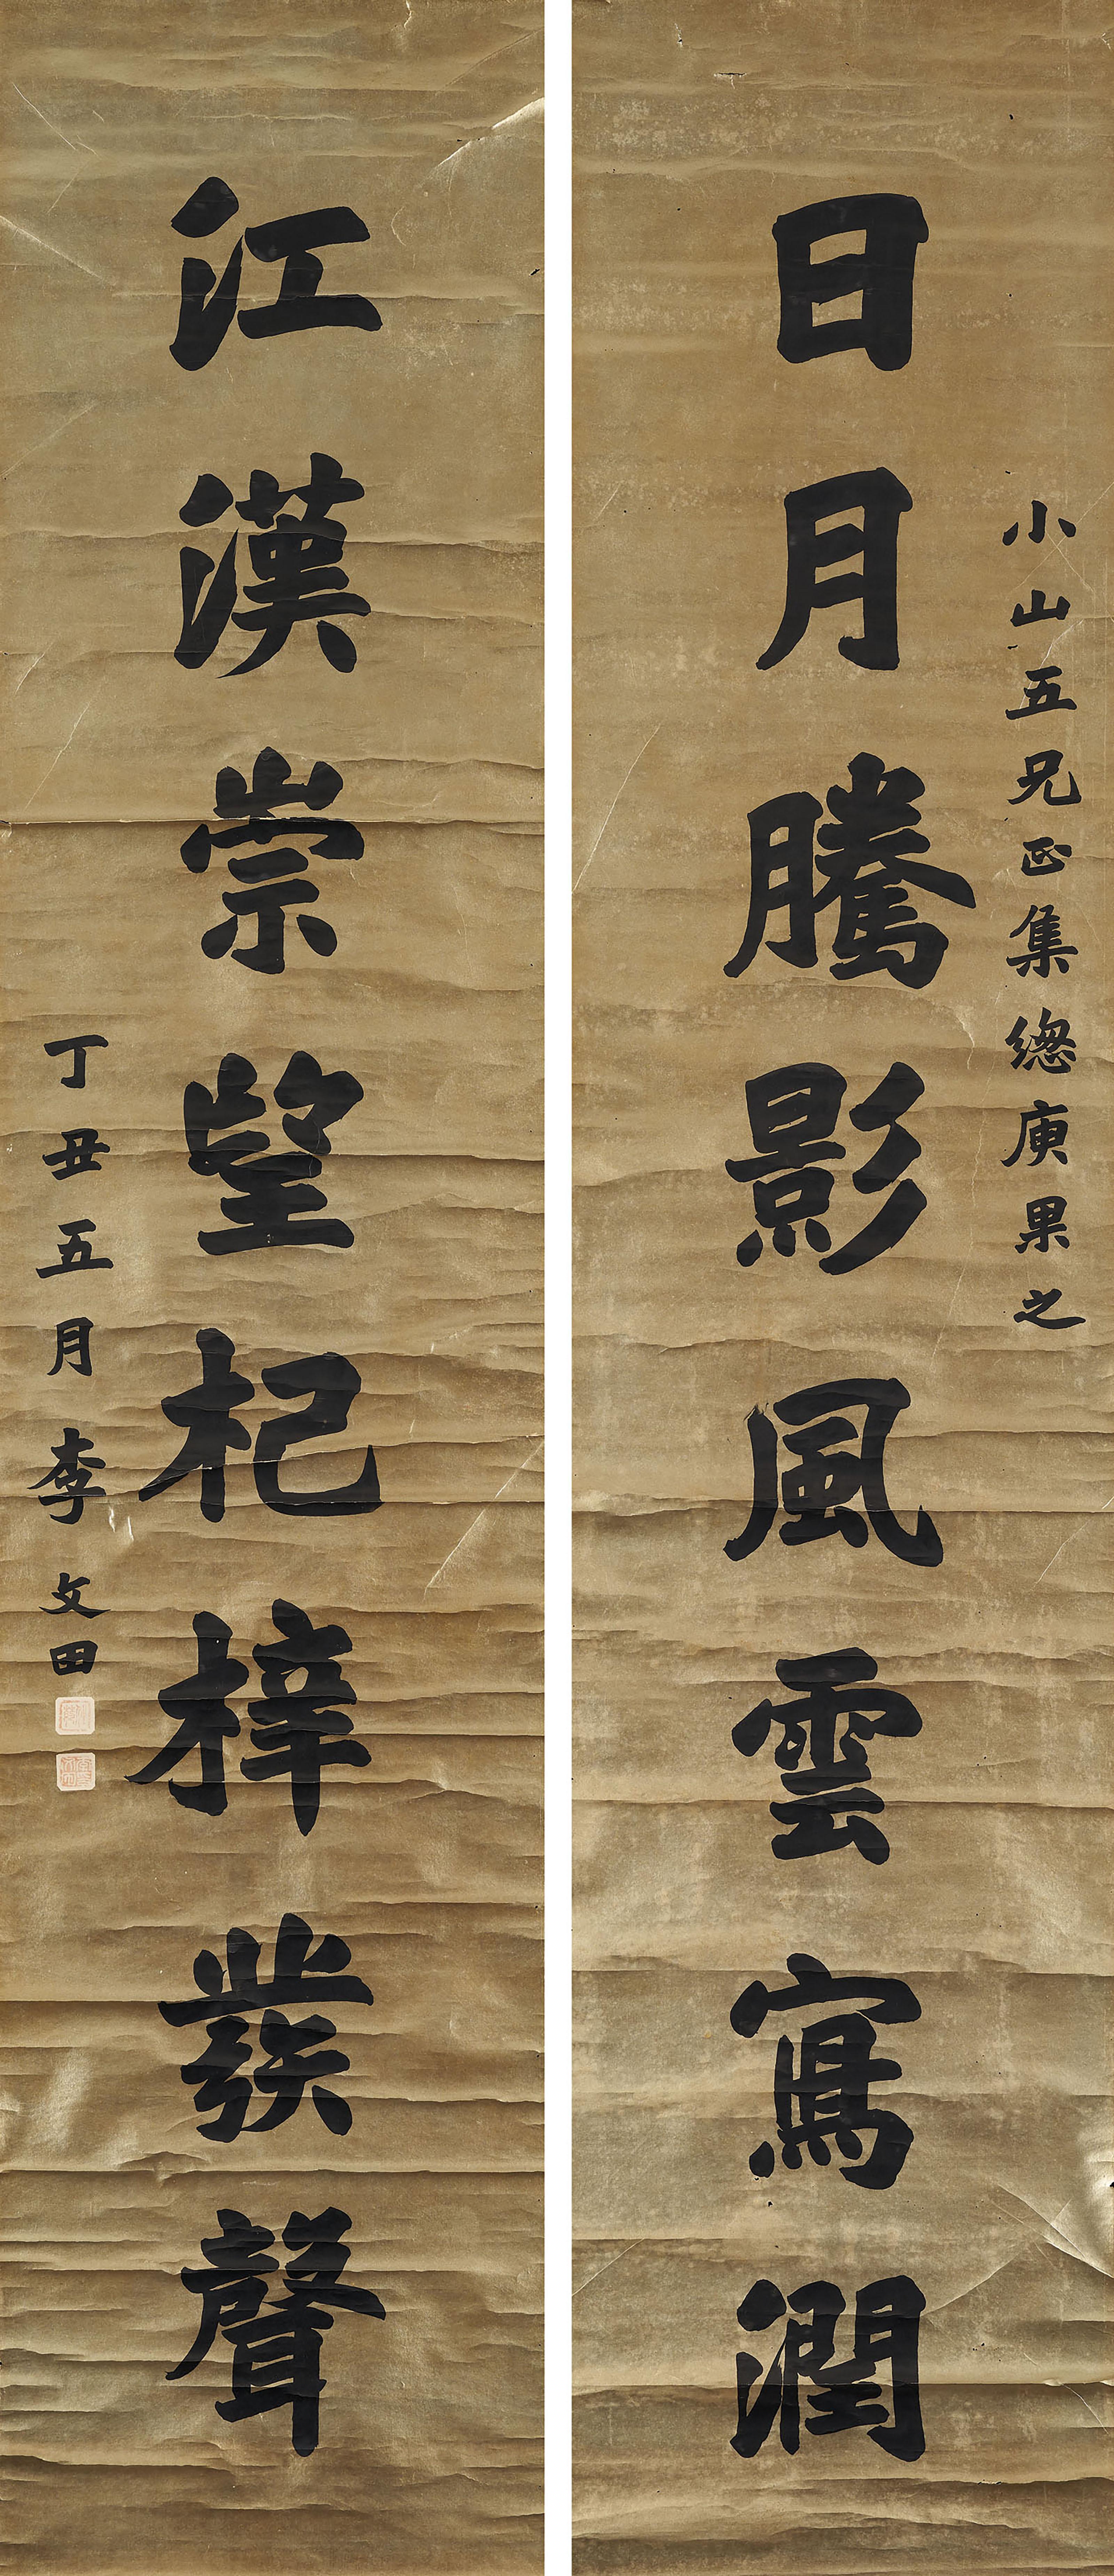 小山五兄正集緫庾果之
日月騰影風雲寫潤
江漢崇望杞梓發聲
丁丑五月李文田